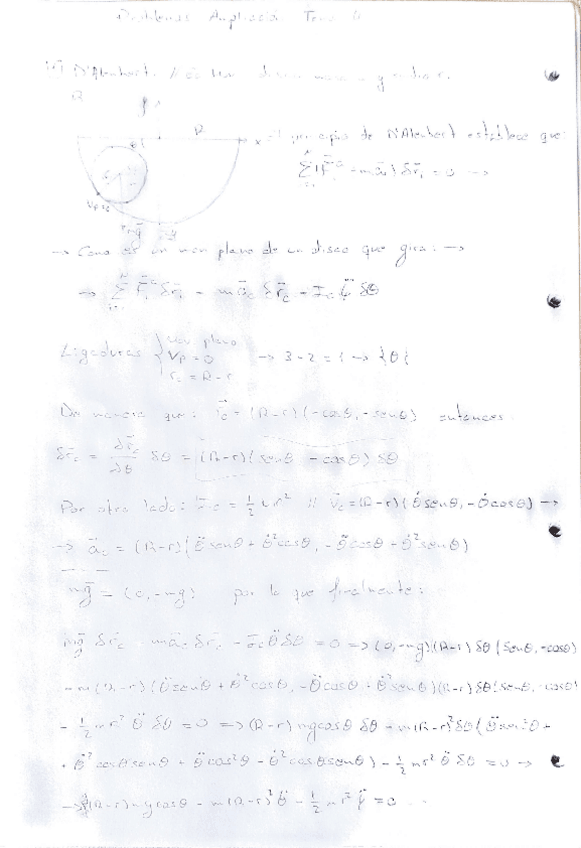 Problemas Ampliación Tema
D'Alembert. // un disco masa m y radio r.
R
y
R
θ
x
El principio de D'Alembert establece que:
Σ(F̄ᵢ - māᵢ) δr̄ᵢ = 0 →
mḡ
→ Como es un mov plano de un disco que gira: →
→ Σ F̄ᵢ δr̄ᵢ - mā_c δr̄_c - I_c φ̈ δθ
Ligaduras { mov plano
V_P = 0 → 3 - 2 = 1 → {θ}
r_c = R - r
De manera que: r̄_c = (R-r)(-cosθ, -senθ) entonces:
δr̄_c = ∂r̄_c/∂θ δθ = (R-r)(senθ - cosθ) δθ
Por otro lado: I_c = 1/2 mr² // v̄_c = (R-r)(θ̇senθ, -θ̇cosθ) →
→ ā_c = (R-r)(θ̈senθ + θ̇²cosθ, -θ̈cosθ + θ̇²senθ)
mḡ = (0, -mg) por lo que finalmente:
mḡ δr̄_c - mā_c δr̄_c - I_c θ̈ δθ = 0 => (0, -mg)(R-r) δθ (senθ, -cosθ)
- m(R-r)(θ̈senθ + θ̇²cosθ, -θ̈cosθ + θ̇²senθ)(R-r) δθ (senθ, -cosθ)
- 1/2 mr² θ̈ δθ = 0 => (R-r) mg cosθ δθ - m(R-r)² δθ (θ̈sen²θ +
+ θ̇² cosθ senθ + θ̈cos²θ - θ̇² cosθ senθ) - 1/2 mr² θ̈ δθ = 0 →
→ (R-r) mg cosθ - m(R-r)² θ̈ - 1/2 mr² φ̈ = 0 ...